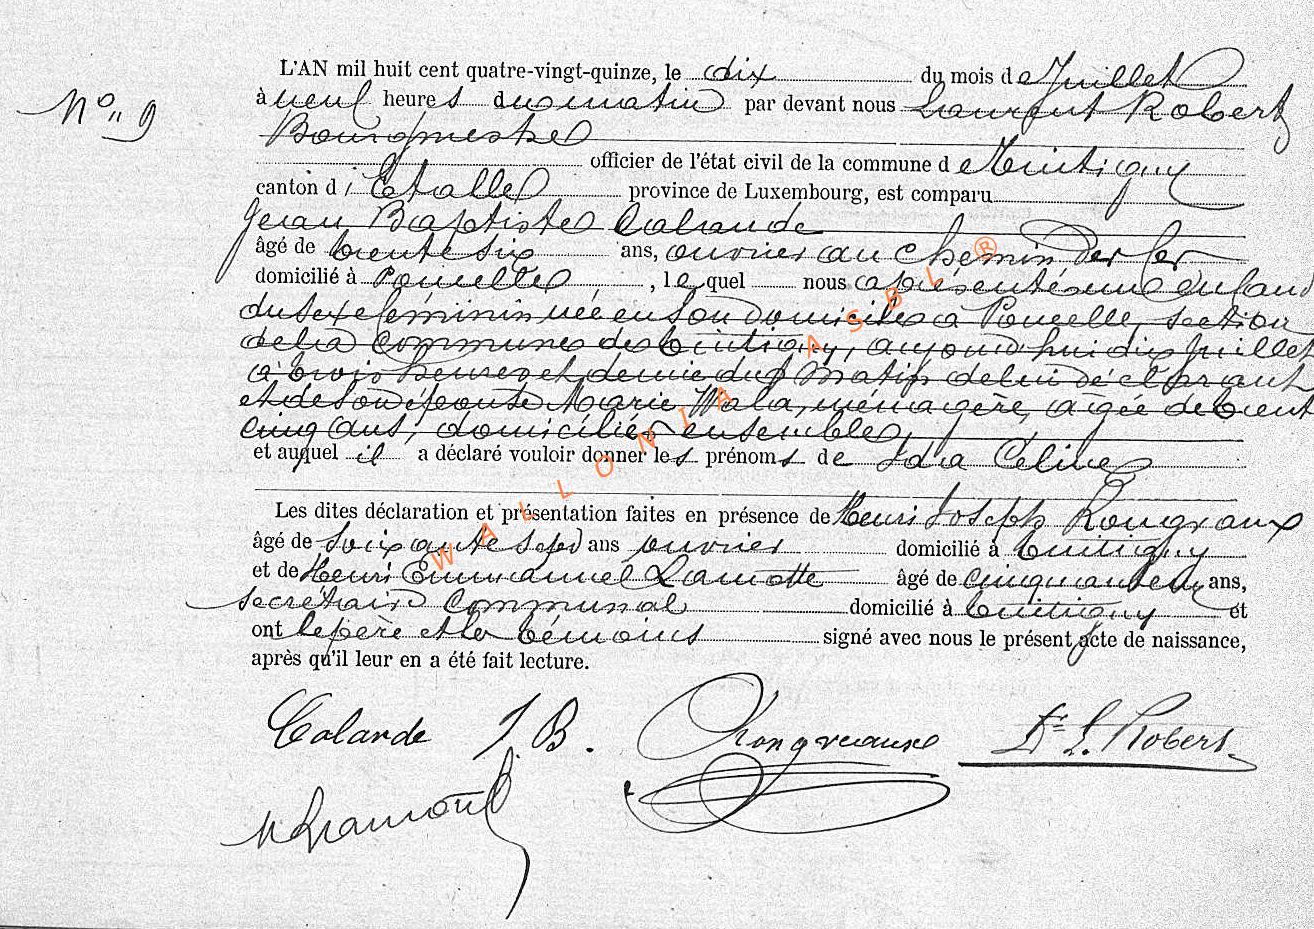 L'AN mil huit cent quatre-vingt-quinze, le dix du mois de Juillet
N° 9
à neuf heures du matin par devant nous Laurent Robert
Bourgmestre
officier de l'état civil de la commune de Tintigny
canton d'Etalle province de Luxembourg, est comparu
Jean Baptiste Calande
âgé de trente six ans, ouvrier au chemin de fer
domicilié à Poncelle, lequel nous a présenté une enfant
du sexe féminin née en son domicile à Poncelle, section
de la commune de Tintigny, aujourd'hui dix Juillet
à trois heures et demie du matin de lui déclarant
et de son épouse Marie Wala, ménagère, agée de trente
cinq ans, domiciliés ensemble,
et auquel il a déclaré vouloir donner les prénoms de Ida Céline
Les dites déclaration et présentation faites en présence de Henri Joseph Rongvaux
âgé de soixante sept ans ouvrier domicilié à Tintigny
et de Henri Emmanuel Lamotte âgé de ans,
secrétaire communal domicilié à Tintigny et
ont le père et les témoins signé avec nous le présent acte de naissance,
après qu'il leur en a été fait lecture.
Calande J. B. Rongveaux Dr L. Robert
H Lamotte
WALLONIA ASBL ®